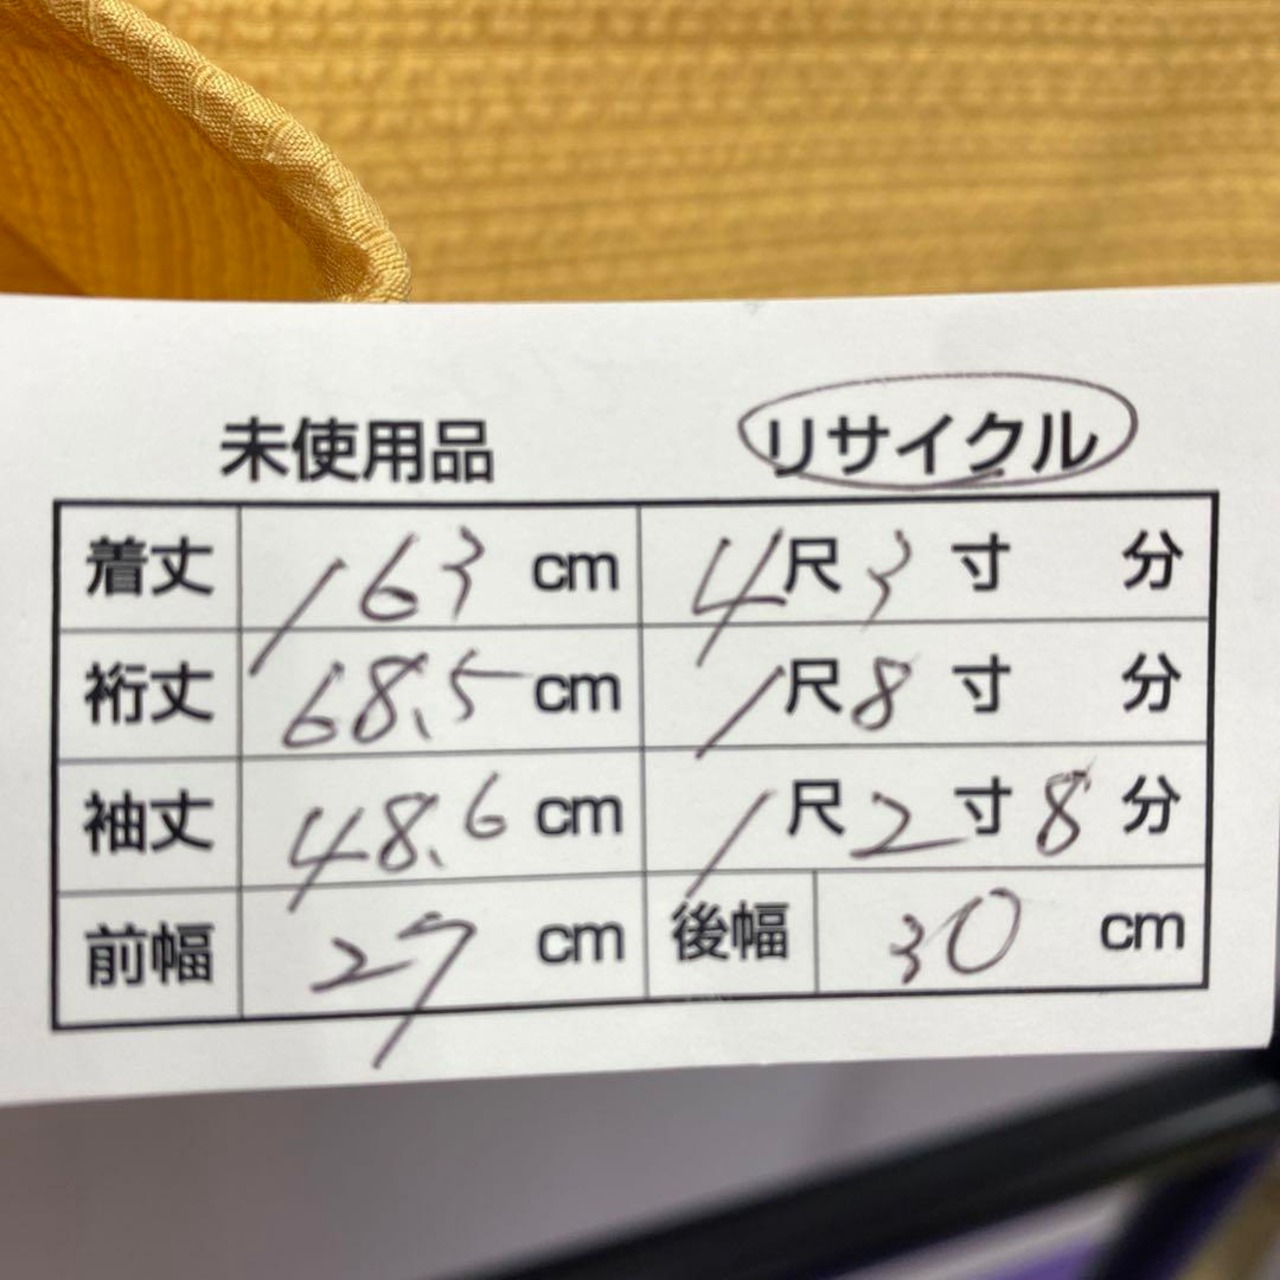 未使用品 リサイクル
着丈 163 cm 4尺3寸 分
裄丈 68.5 cm 1尺8寸 分
袖丈 48.6 cm 1尺2寸8分
前幅 27 cm 後幅 30 cm